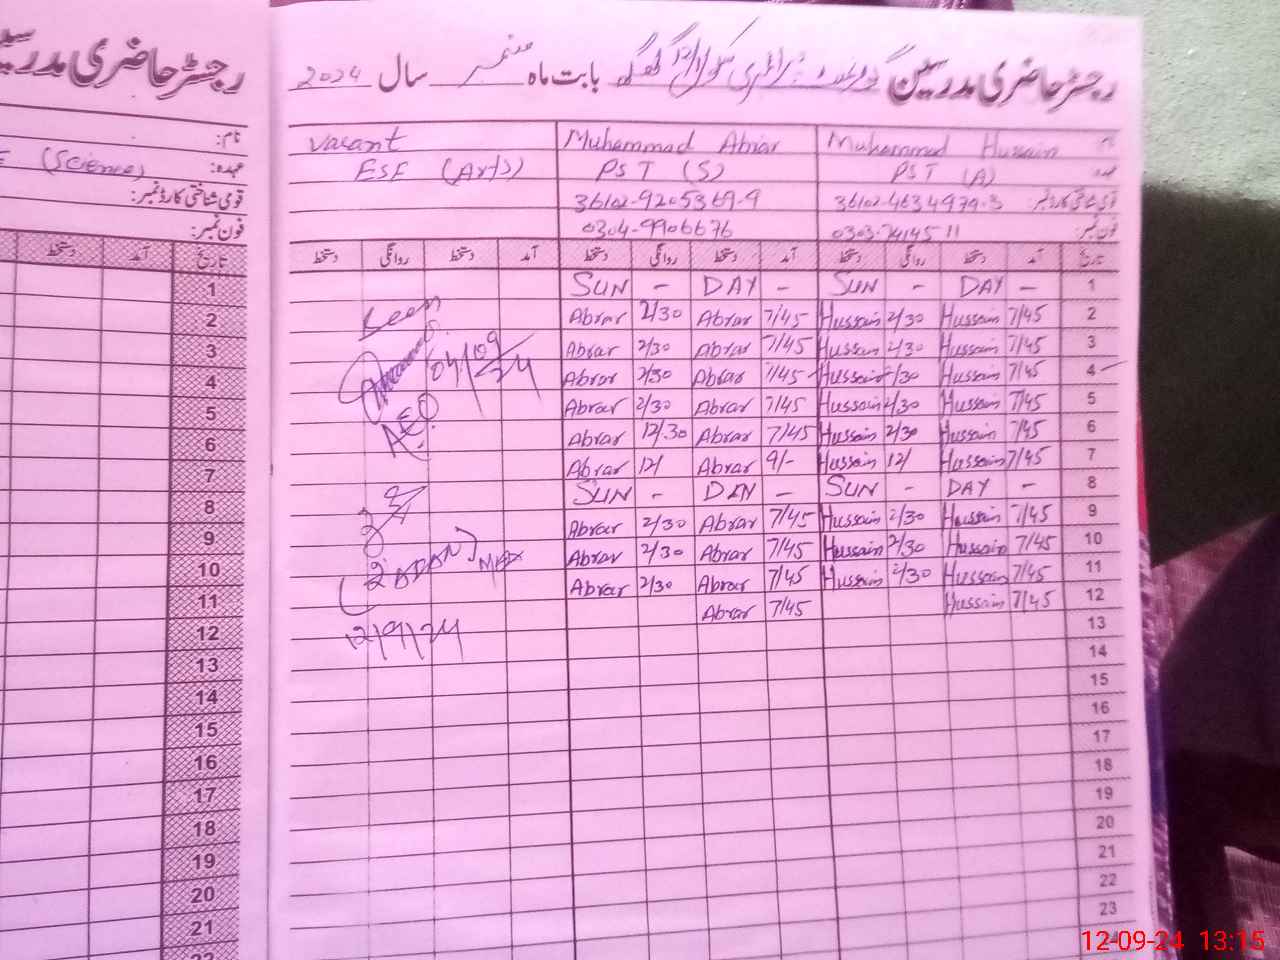 رجسٹر حاضری مدرسین گورنمنٹ پرائمری سکول بابت ماہ ستمبر سال 2024
Muhammad Hussain Muhammad Abrar Vacant
عہدہ PST (A) PST (S) ESE (Arts)
قومی شناختی کارڈ نمبر: 36102-4634979-3 36102-9205369-9
فون نمبر: 0303-7414511 0304-9906676
تاریخ آمد دستخط روانگی دستخط آمد دستخط روانگی دستخط آمد دستخط روانگی دستخط
1 SUN - DAY - SUN - DAY -
2 Abrar 2/30 Abrar 7/45 Hussain 2/30 Hussain 7/45
3 Abrar 2/30 Abrar 7/45 Hussain 2/30 Hussain 7/45
4 Abrar 2/30 Abrar 7/45 Hussain 2/30 Hussain 7/45
5 Abrar 2/30 Abrar 7/45 Hussain 2/30 Hussain 7/45
6 Abrar 12/30 Abrar 7/45 Hussain 2/30 Hussain 7/45
7 Abrar 12/ Abrar 9/- Hussain 12/ Hussain 7/45
8 SUN - DAY - SUN - DAY -
9 Abrar 2/30 Abrar 7/45 Hussain 2/30 Hussain 7/45
10 Abrar 2/30 Abrar 7/45 Hussain 2/30 Hussain 7/45
11 Abrar 2/30 Abrar 7/45 Hussain 2/30 Hussain 7/45
12 Abrar 7/45 Hussain 7/45
13
14
15
16
17
18
19
20
21
22
23
24
Seen
04/09/24
AEO
12/9/24
رجسٹر حاضری مدرسین
نام:
عہدہ: (Science)
قومی شناختی کارڈ نمبر:
فون نمبر:
تاریخ آمد دستخط
1
2
3
4
5
6
7
8
9
10
11
12
13
14
15
16
17
18
19
20
21
22
12-09-24 13:15